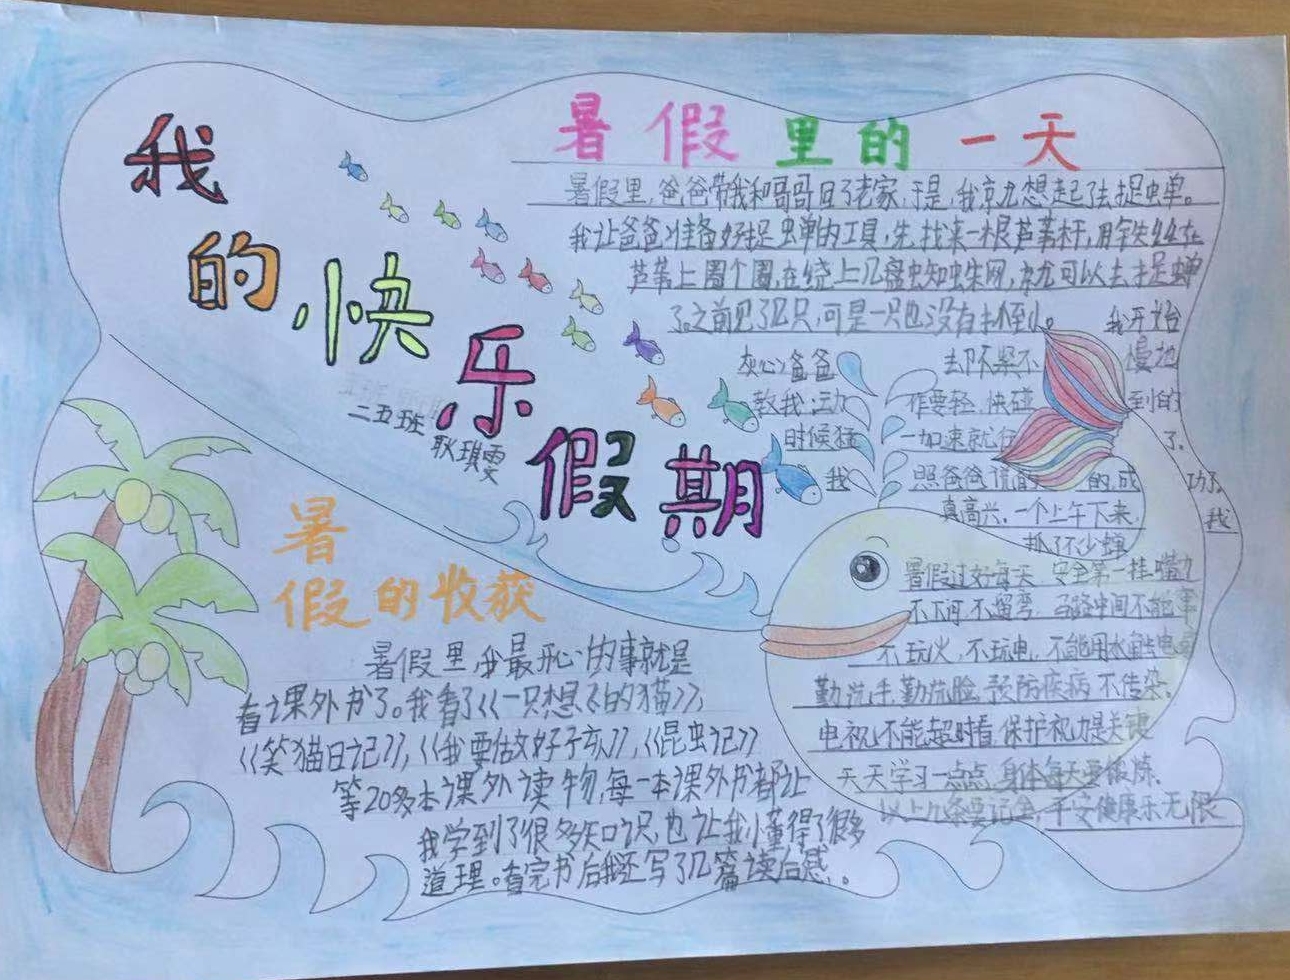 我的快乐假期
二五班 耿琪雯
暑假里的一天
暑假里，爸爸带我和哥哥回了老家，于是，我就想起了去捉蝉。
我让爸爸准备好捉蝉的工具，先找来一根芦苇杆，用铁丝在
芦苇上圈个圈，在绕上几盘蜘蛛网，就可以去捉蝉
了。之前见了几只，可是一只也没有抓到。 我开始
灰心，爸爸 却不紧不 慢地
教我：动 作要轻，快碰 到的
时候猛 一加速就 了。
我 照爸爸说 的，成 功了，我
真高兴，一个上午下来，
抓了不少蝉
暑假过好每天 安全第一挂嘴边
不下河 不 马路中间不能
不玩火，不玩电，不能用水触电
勤洗手 勤洗脸 预防疾病 不传染。
电视不能超时看，保护视力是关键
天天学习一点点，身体每天要锻炼。
以上几条要记牢，平安健康乐无限
暑假的收获
暑假里，我最开心的事就是
看课外书了。我看了《一只想飞的猫》，
《笑猫日记》，《我要做好孩子》，《昆虫记》
等20多本课外读物，每一本课外书都让
我学到了很多知识，也让我懂得了很多
道理。看完书后我还写了几篇读后感。